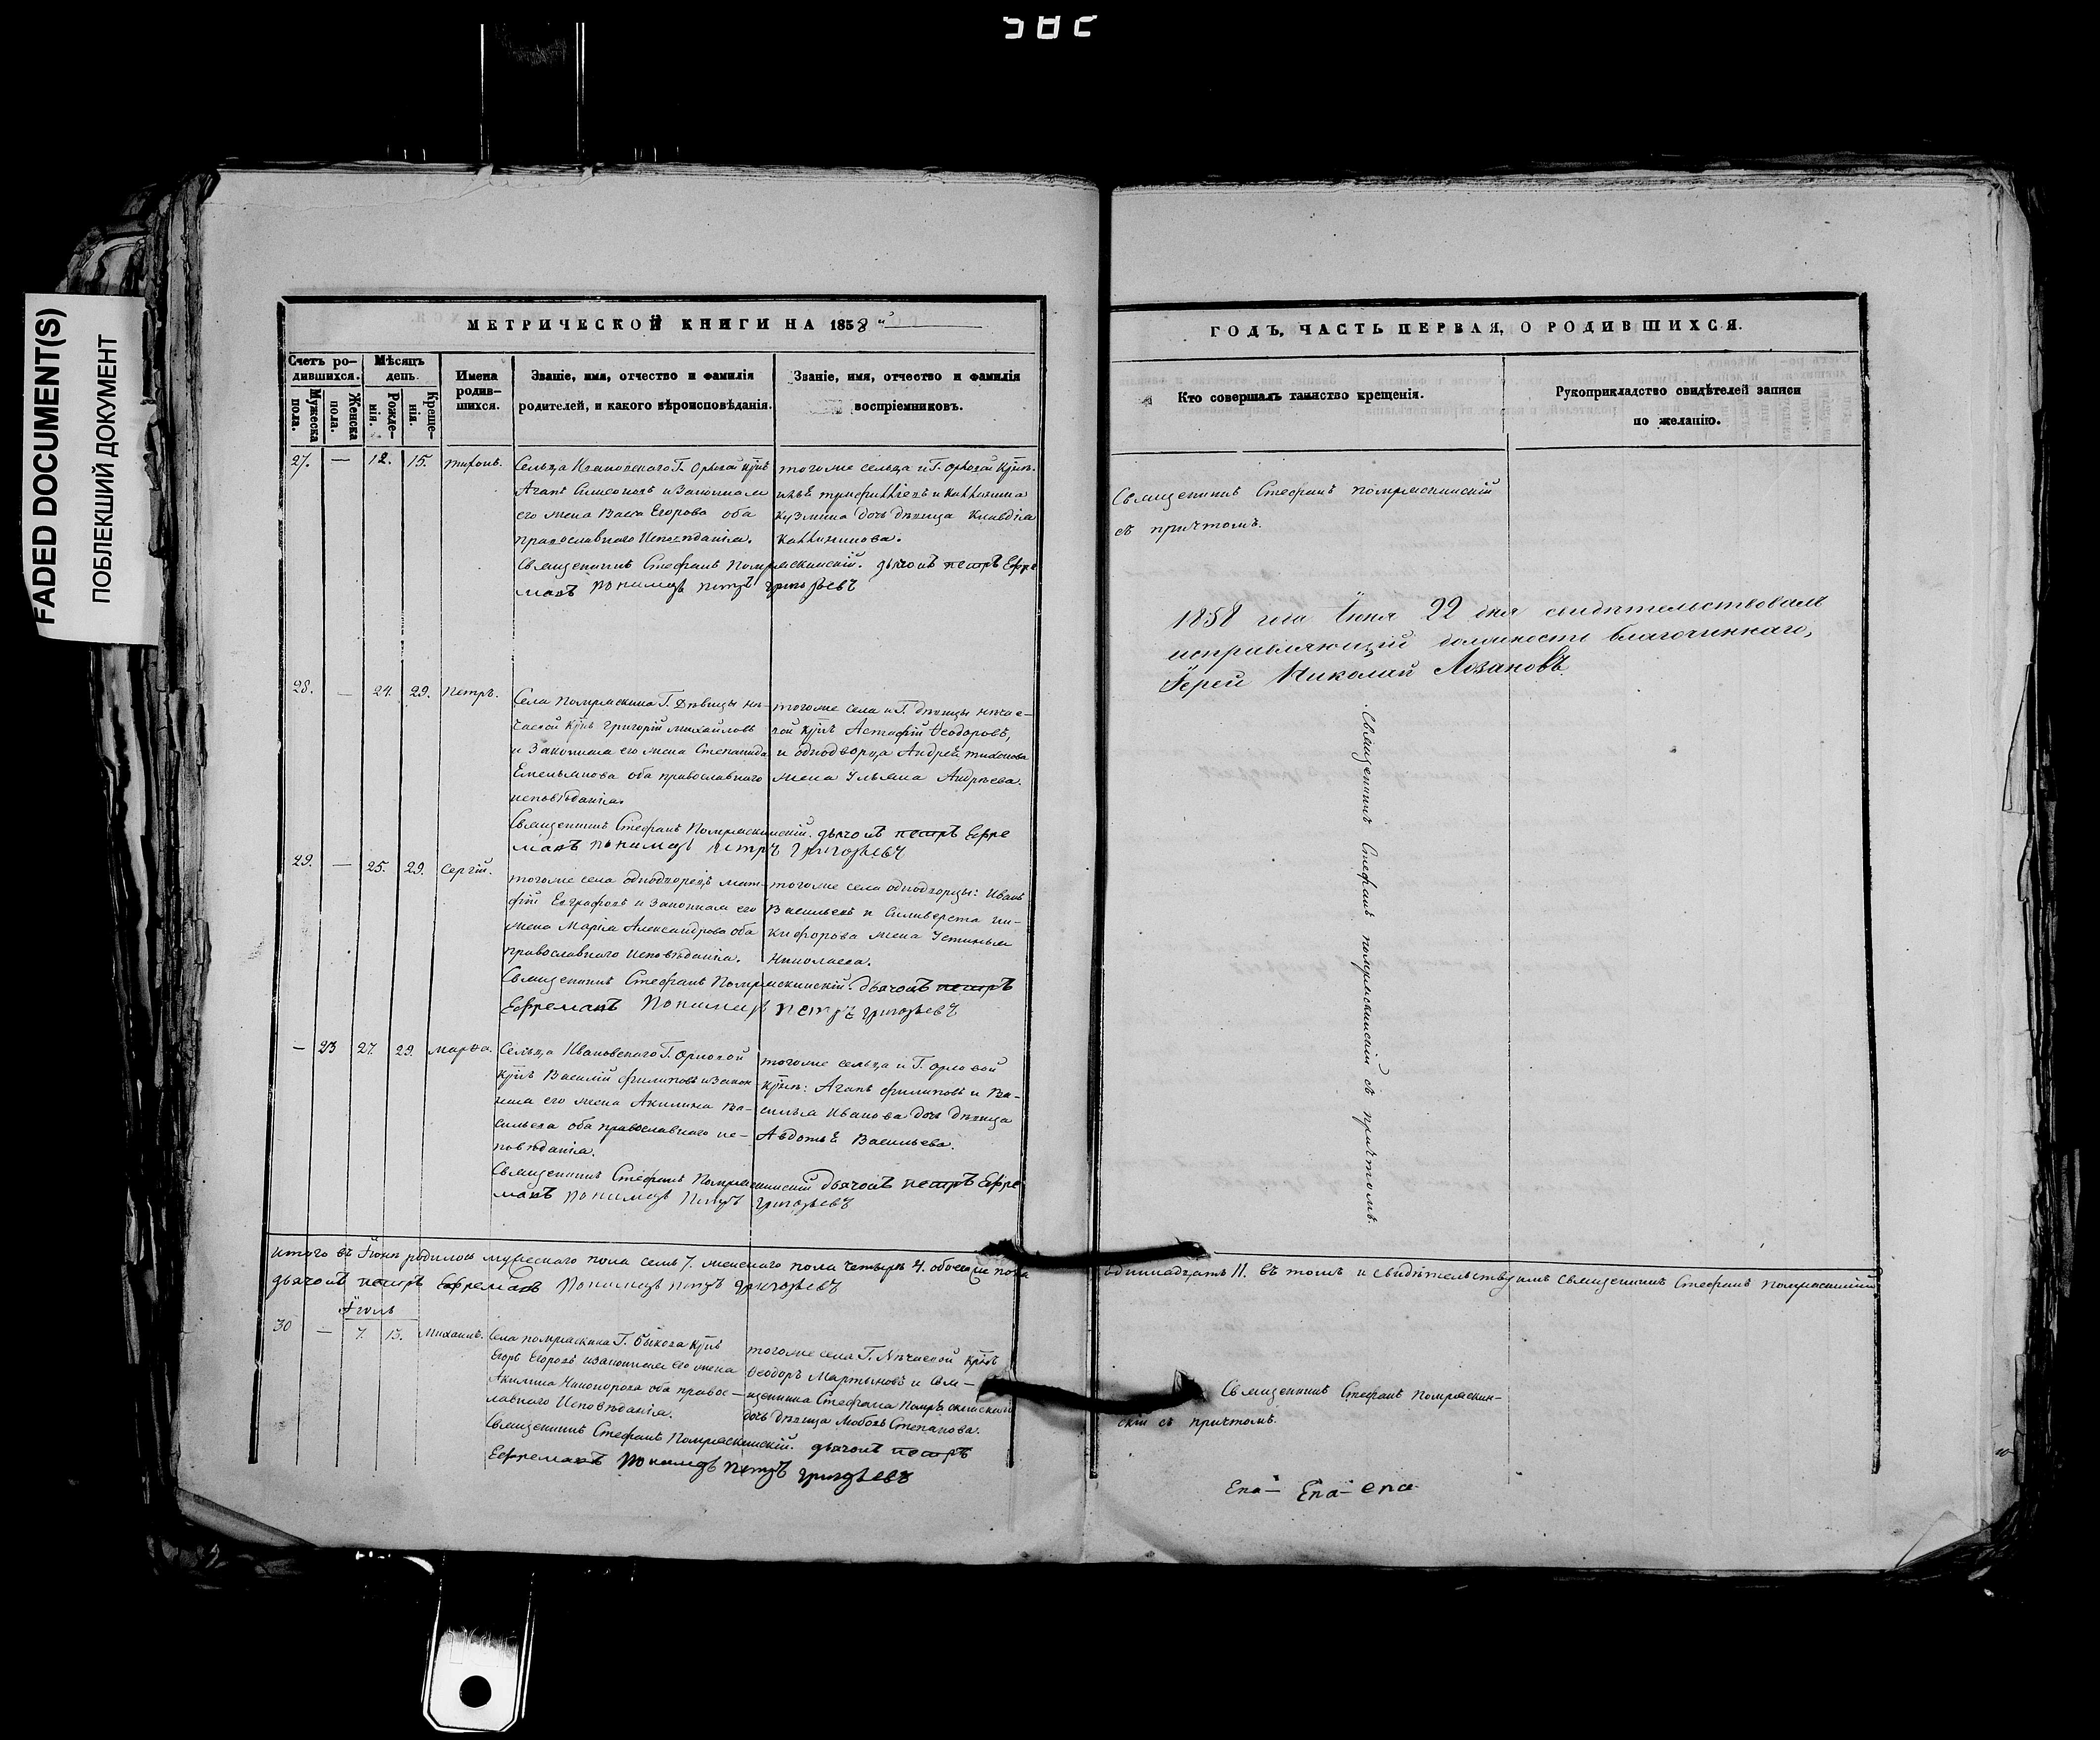 582
FADED DOCUMENT(S)
ПОБЛЕКШИЙ ДОКУМЕНТ
МЕТРИЧЕСКОЙ КНИГИ НА 1858 й
Счетъ ро-
дившихся.
Мужеска
пола.
Женска
пола.
Мѣсяцъ
день.
Рожде-
нія.
Креще-
нія.
Имена
родив-
шихся.
Званіе, имя, отчество и фамилія
родителей, и какого вѣроисповѣданія.
Званіе, имя, отчество и фамилія
воспріемниковъ.
27. — 12. 15. Тихонъ.
Сельца Ивановскаго Г. Орловой
Агапъ Симеоновъ и законная
его жена Васса Егорова оба
православнаго исповѣданія.
тогоже сельца и Г. Орловой
Кузмина дочь дѣвица Клавдія
Священникъ Стефанъ Помряскинскій. дьячокъ петръ Ефре
мовъ пономарь петръ григорьевъ
28. — 24. 29. Петръ.
Села Помряскина Г. Дѣвицы Нѣ-
чаевой Григорій Михайловъ
и законная его жена Степанида
Емельянова оба православнаго
исповѣданія.
тогоже села и Г. дѣвицы Нѣчае-
вой Астафій Ѳеодоровъ,
и однодворца Андрея Тихонова
жена Ульяна Андреева.
Священникъ Стефанъ Помряскинскій. дьячокъ петръ Ефре
мовъ пономарь петръ григорьевъ
29. — 25. 29. Сергій.
тогоже села однодворецъ Мат-
фій Евграфовъ и законная его
жена Марія Александрова оба
православнаго исповѣданія.
тогоже села однодворцы: Иванъ
Васильевъ и Силиверста Ни-
кифорова жена Устинья
Николаева.
Священникъ Стефанъ Помряскинскій. дьячокъ петръ
Ефремовъ Пономарь петръ григорьевъ
— 23 27. 29. Марѳа.
Сельца Ивановскаго Г. Орловой
Василій Филиповъ и закон
ная его жена Акилина Ва-
сильева оба православнаго ис-
повѣданія.
тогоже сельца и Г. Орловой
Агапъ Филиповъ и Ва-
силья Иванова дочь дѣвица
Авдотья Васильева.
Священникъ Стефанъ Помряскинскій дьячокъ петръ Ефре
мовъ пономарь Петръ григорьевъ
Итого въ Іюнѣ родилось мужескаго пола семь 7. женскаго пола четыре 4. обоего пола
дьячокъ петръ Ефремовъ Пономарь петръ григорьевъ
Іюль
30 — 7. 13. Михаилъ.
Села Помряскина Г. Быкова
Егоръ Егоровъ и законная его жена
Акилина Никонорова оба правос-
лавнаго Исповѣданія.
тогоже села Г. Нѣчаевой
Ѳеодоръ Мартыновъ и Свя-
щенника Стефана Помряскинскаго
дочь дѣвица Любовь Степанова.
Священникъ Стефанъ Помряскинскій. дьячокъ петръ
Ефремовъ Пономарь петръ григорьевъ
ГОДЪ, ЧАСТЬ ПЕРВАЯ, О РОДИВШИХСЯ.
Кто совершалъ таинство крещенія.
Рукоприкладство свидѣтелей записи
по желанію.
Священникъ Стефанъ Помряскинскій
съ причтомъ.
1858 года Іюня 22 дня свидѣтельствовалъ
исправляющій должность благочиннаго,
Іерей Николай Лозановъ.
Священникъ Стефанъ помряскинскій съ причтомъ.
одиннадцать 11. въ томъ и свидѣтельствуемъ Священникъ Стефанъ Помряскинскій
Священникъ Стефанъ Помряскин-
скій съ причтомъ.